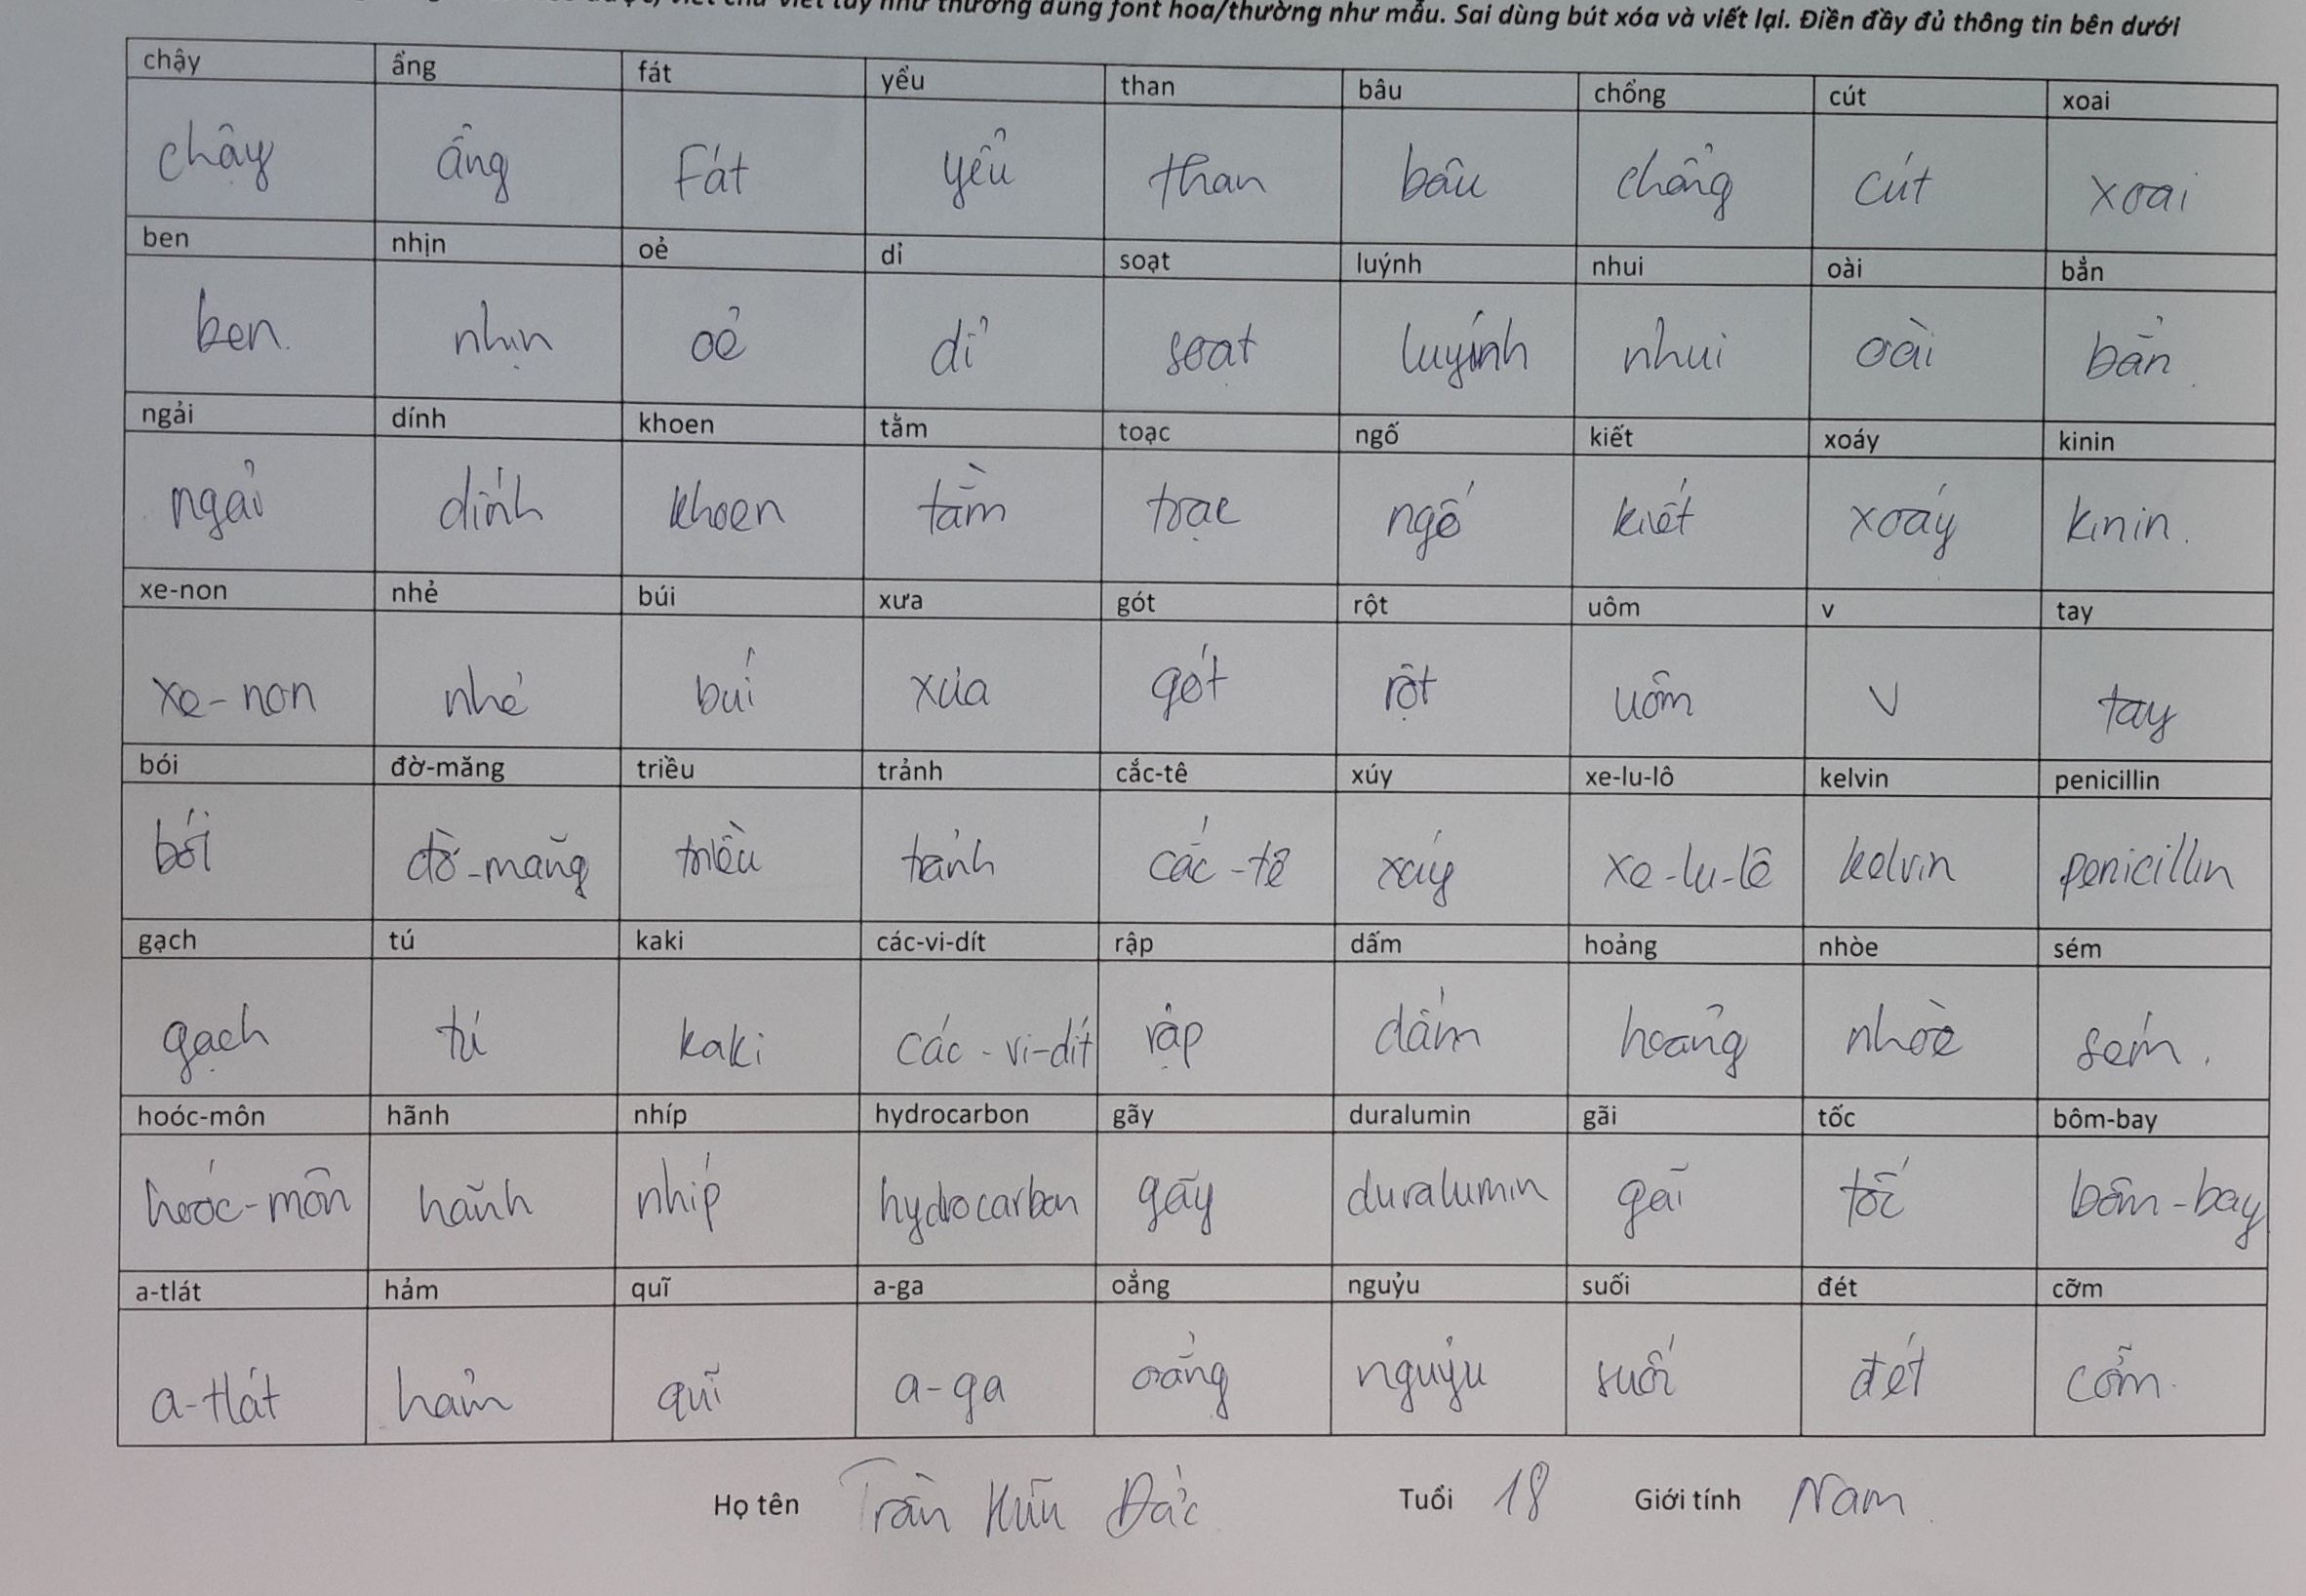 viết chữ viết tay như thường dùng font hoa/thường như mẫu. Sai dùng bút xóa và viết lại. Điền đầy đủ thông tin bên dưới
chậy ẩng fát yểu than bâu chổng cút xoai
chậy ẩng Fát yểu than bâu chổng cút xoai
ben nhịn oẻ dỉ soạt luýnh nhui oài bẳn
ben. nhịn oẻ dỉ soạt luýnh nhui oài bẳn.
ngải dính khoen tằm toạc ngố kiết xoáy kinin
ngải dính khoen tằm toạc ngố kiết xoáy kinin.
xe-non nhẻ búi xưa gót rột uôm v tay
xe-non nhẻ búi xưa gót rột uôm v tay
bói đờ-măng triều trảnh cắc-tê xúy xe-lu-lô kelvin penicillin
bói đờ-măng triều trảnh cắc-tê xúy xe-lu-lô kelvin penicillin
gạch tú kaki các-vi-dít rập dấm hoảng nhòe sém
gạch tú kaki các-vi-dít rập dấm hoảng nhòe sém.
hoóc-môn hãnh nhíp hydrocarbon gãy duralumin gãi tốc bôm-bay
hoóc-môn hãnh nhíp hydrocarbon gãy duralumin gãi tốc bôm-bay
a-tlát hảm quĩ a-ga oẳng nguỷu suối đét cỡm
a-tlát hảm quĩ a-ga oẳng nguỷu suối đét cỡm.
Họ tên Trần Hữu Đắc Tuổi 18 Giới tính Nam